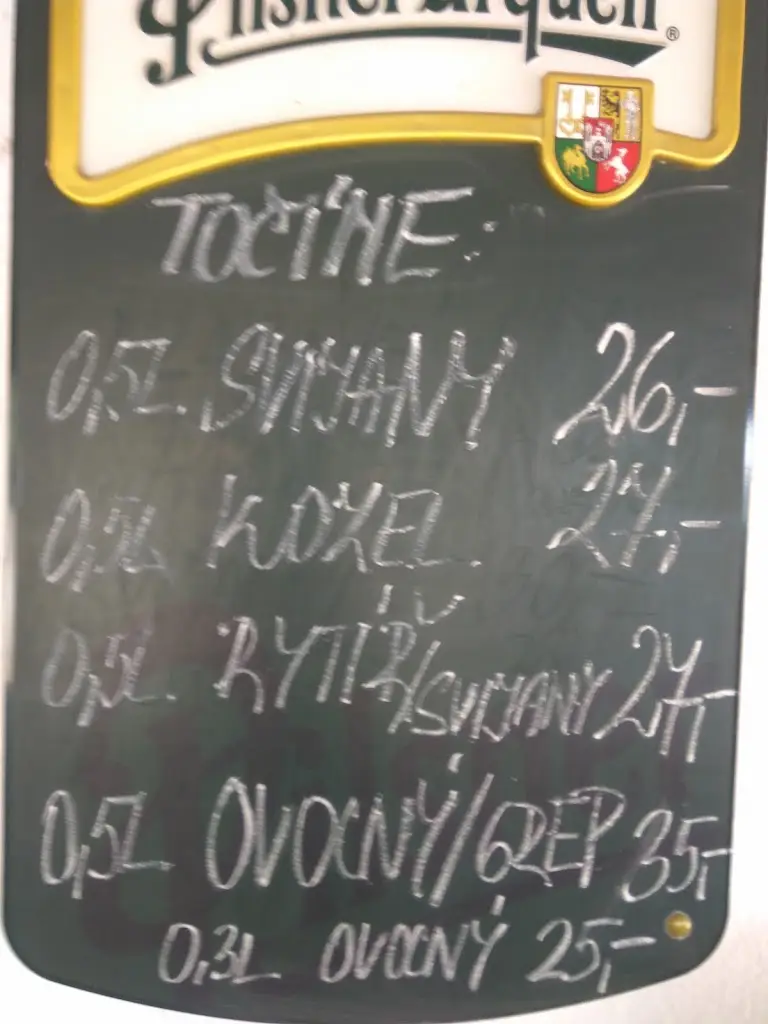 Pilsner Urquell ®
TOČÍME:
0,5L SVIJANY 26,-
0,5L KOZEL 27,-
0,5L. RYTÍŘ/SVIJANY 27,-
0,5L OVOCNÝ/GREP 35,-
0,3L OVOCNÝ 25,-